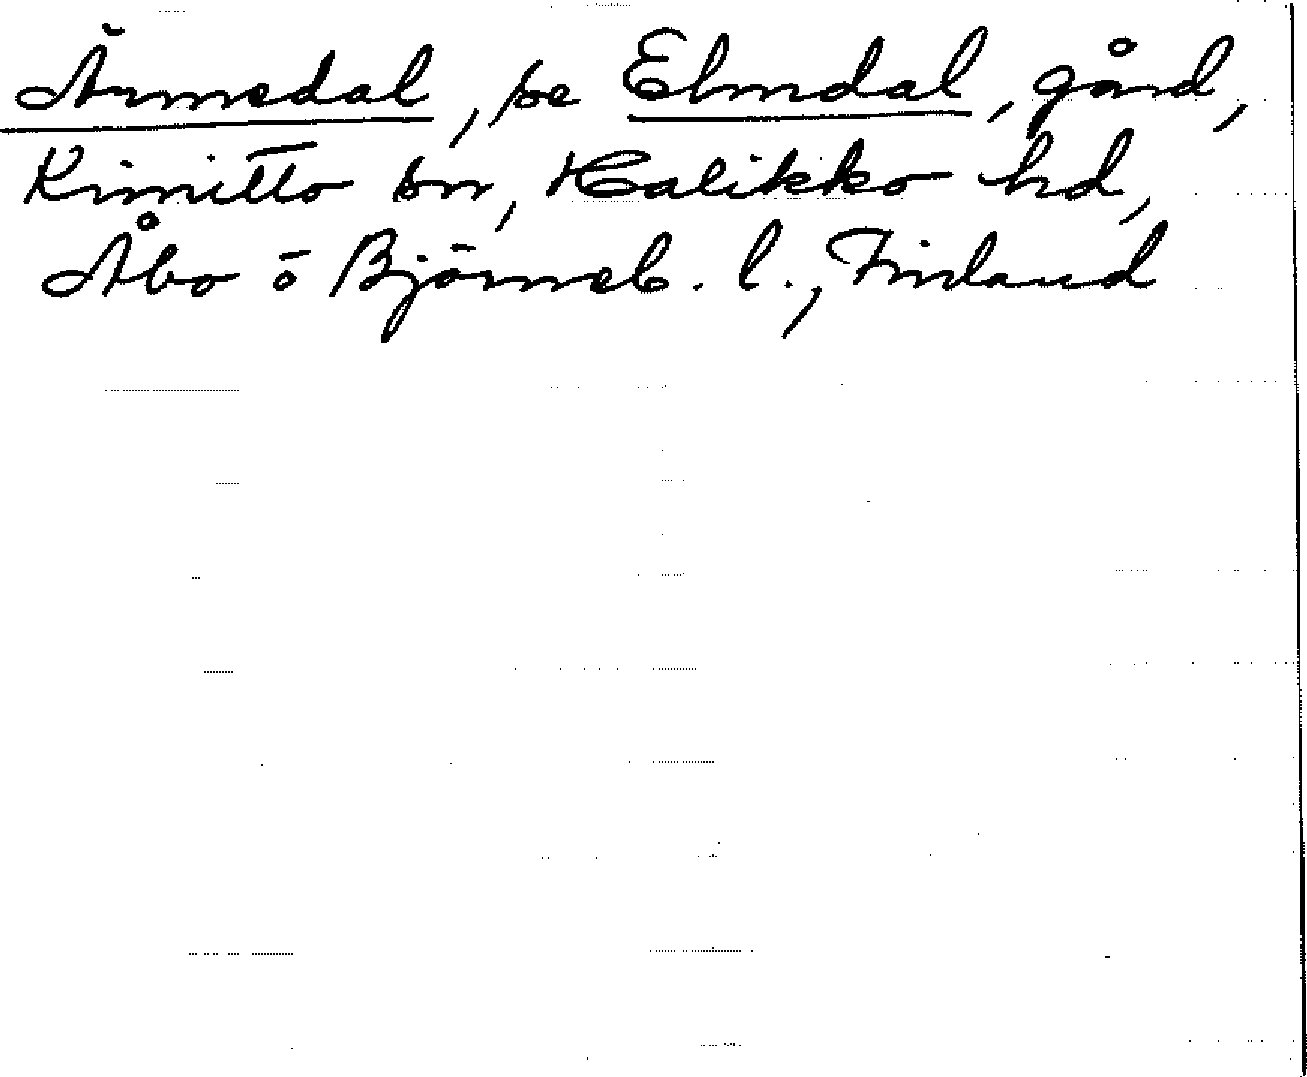 Ämnedal, se Elmdal, gård,
Kimitto sn, Halikko hd,
Åbo o Björneb. l., Finland